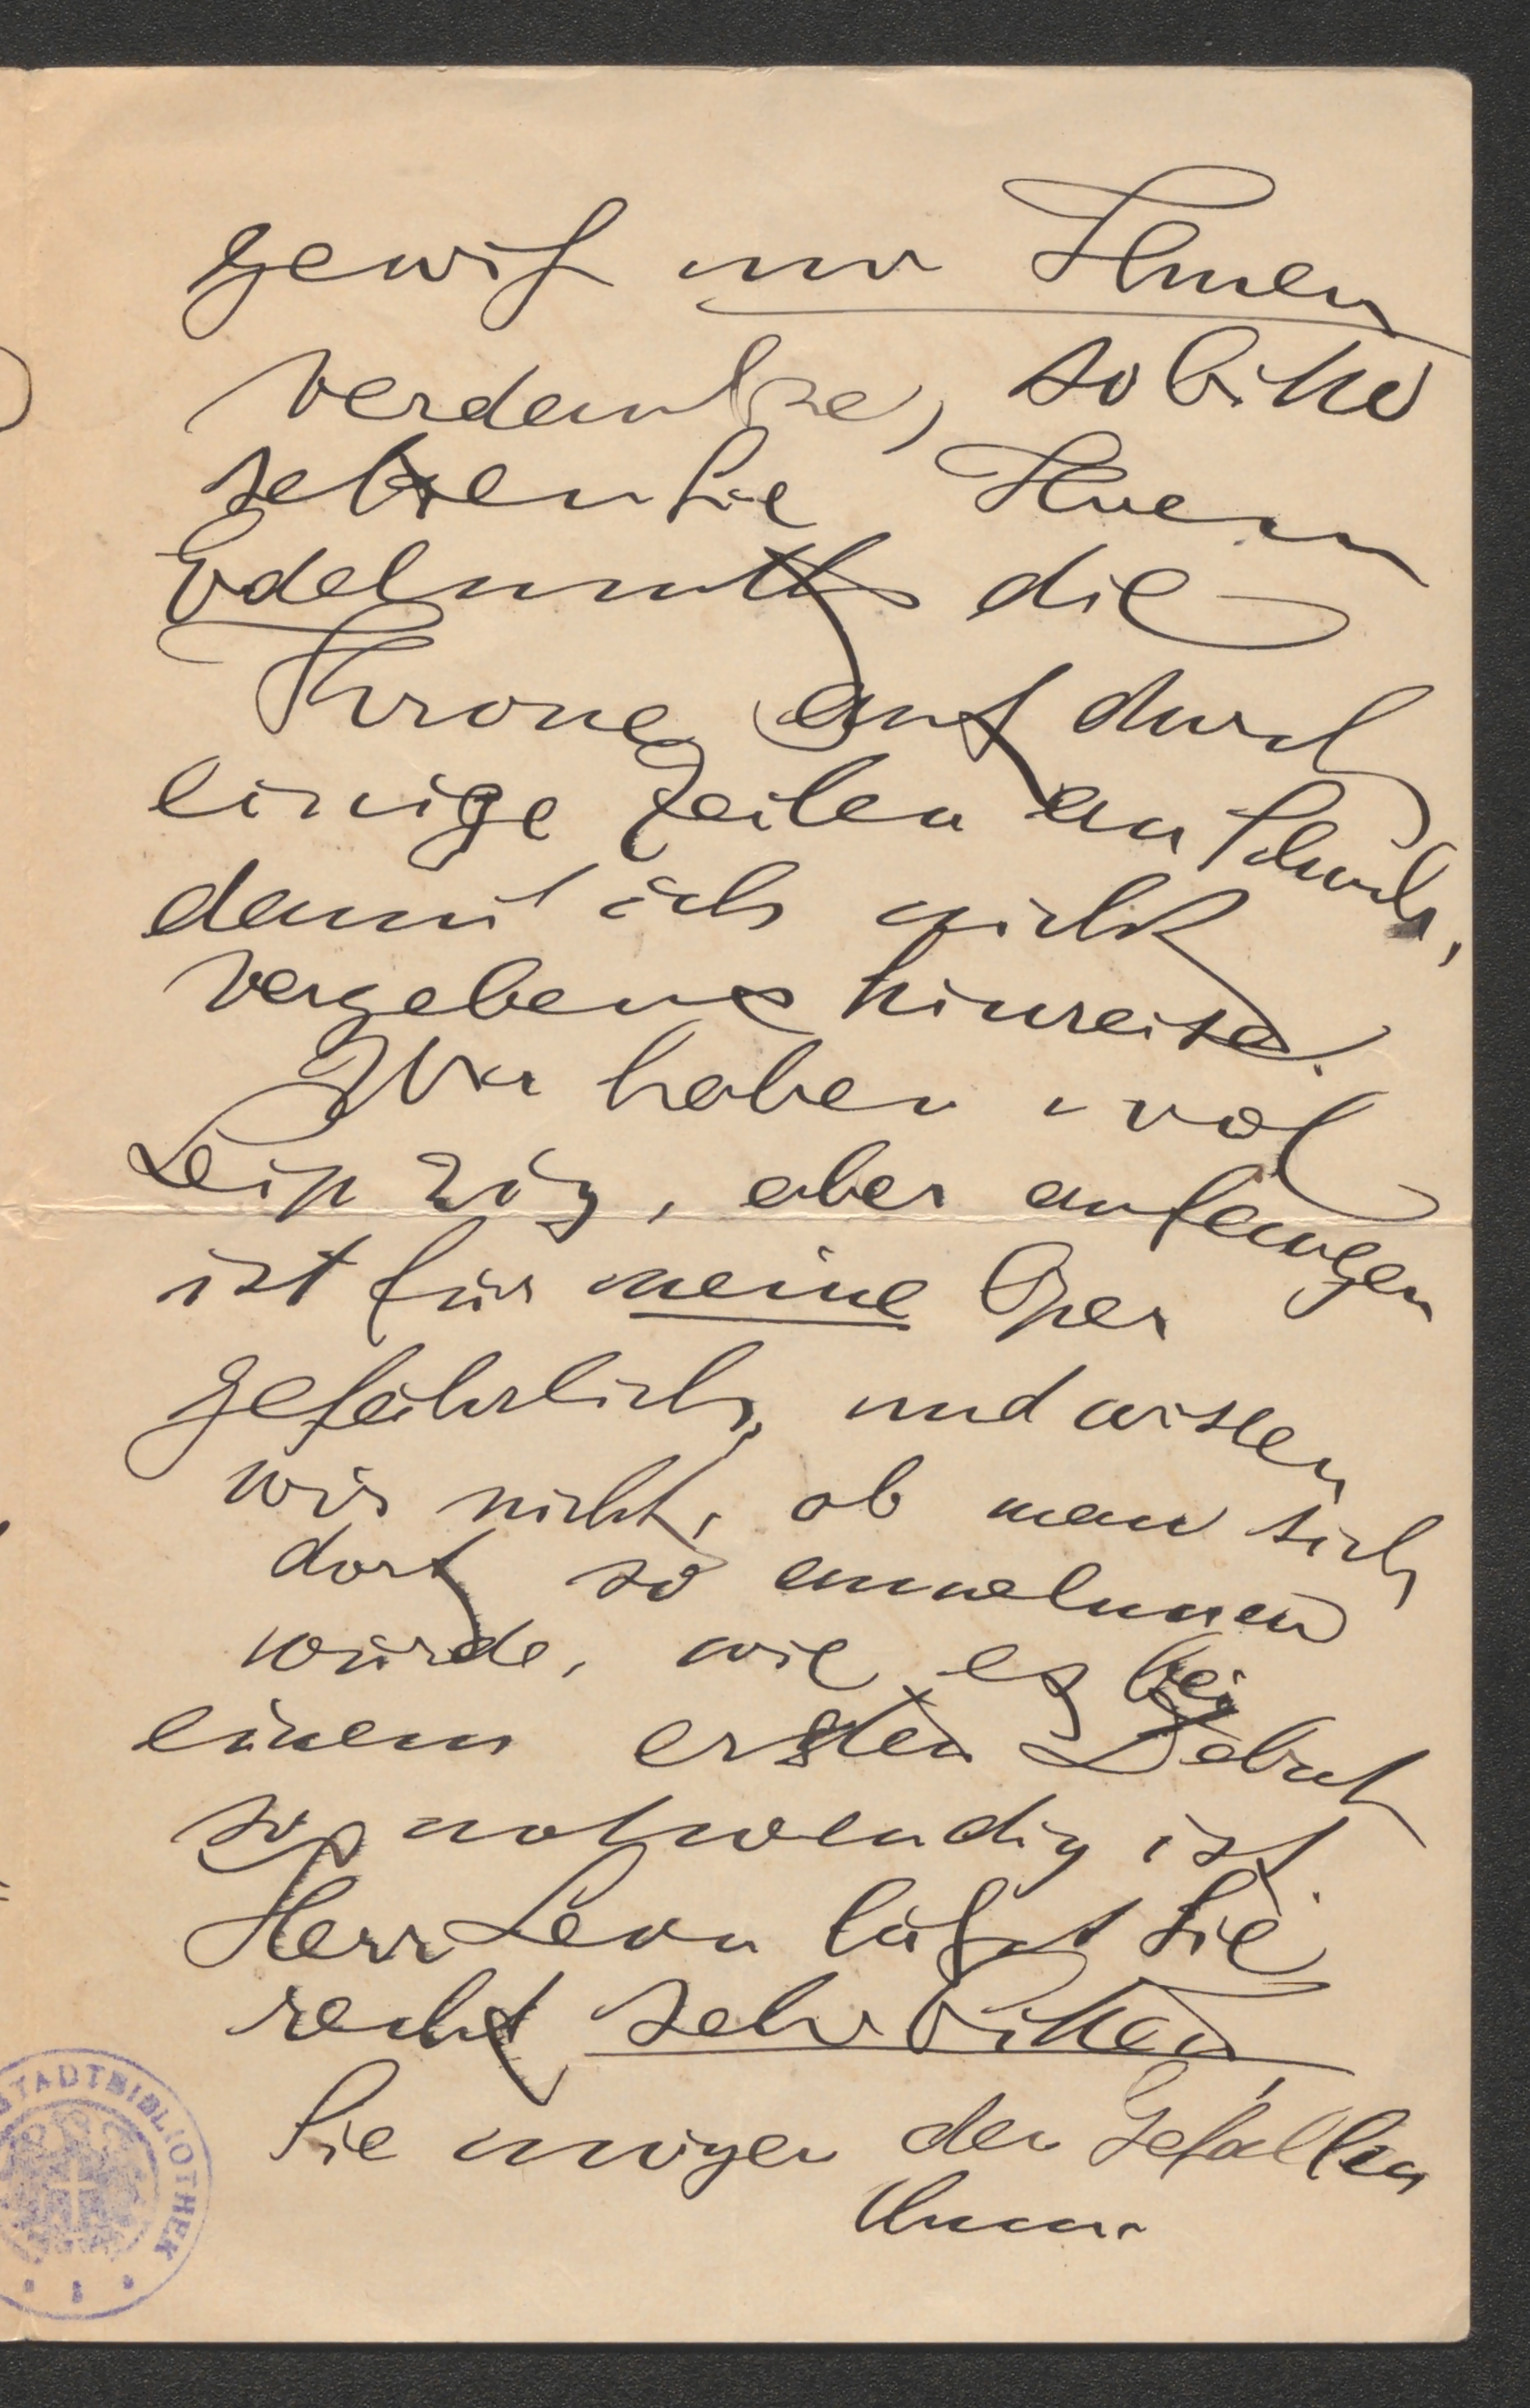 gewiß nur Ihnen
verdanke, so bitte
setzen Sie Ihrem
Edelmuth die
Krone auf durch
einige Zeilen an Schuch,
damit ich nicht
vergebens hinreise.
Wir haben wol
Leipzig, aber anfangen
ist für meine Oper
gefährlich, und wissen
wir nicht, ob man sich
dort so annehmen
würde, wie es bei
einem ersten Debut
so notwendig ist.
Herr Leon läßt Sie
recht sehr bitten,
Sie mögen den Gefallen
thun.
STADTBIBLIOTHEK